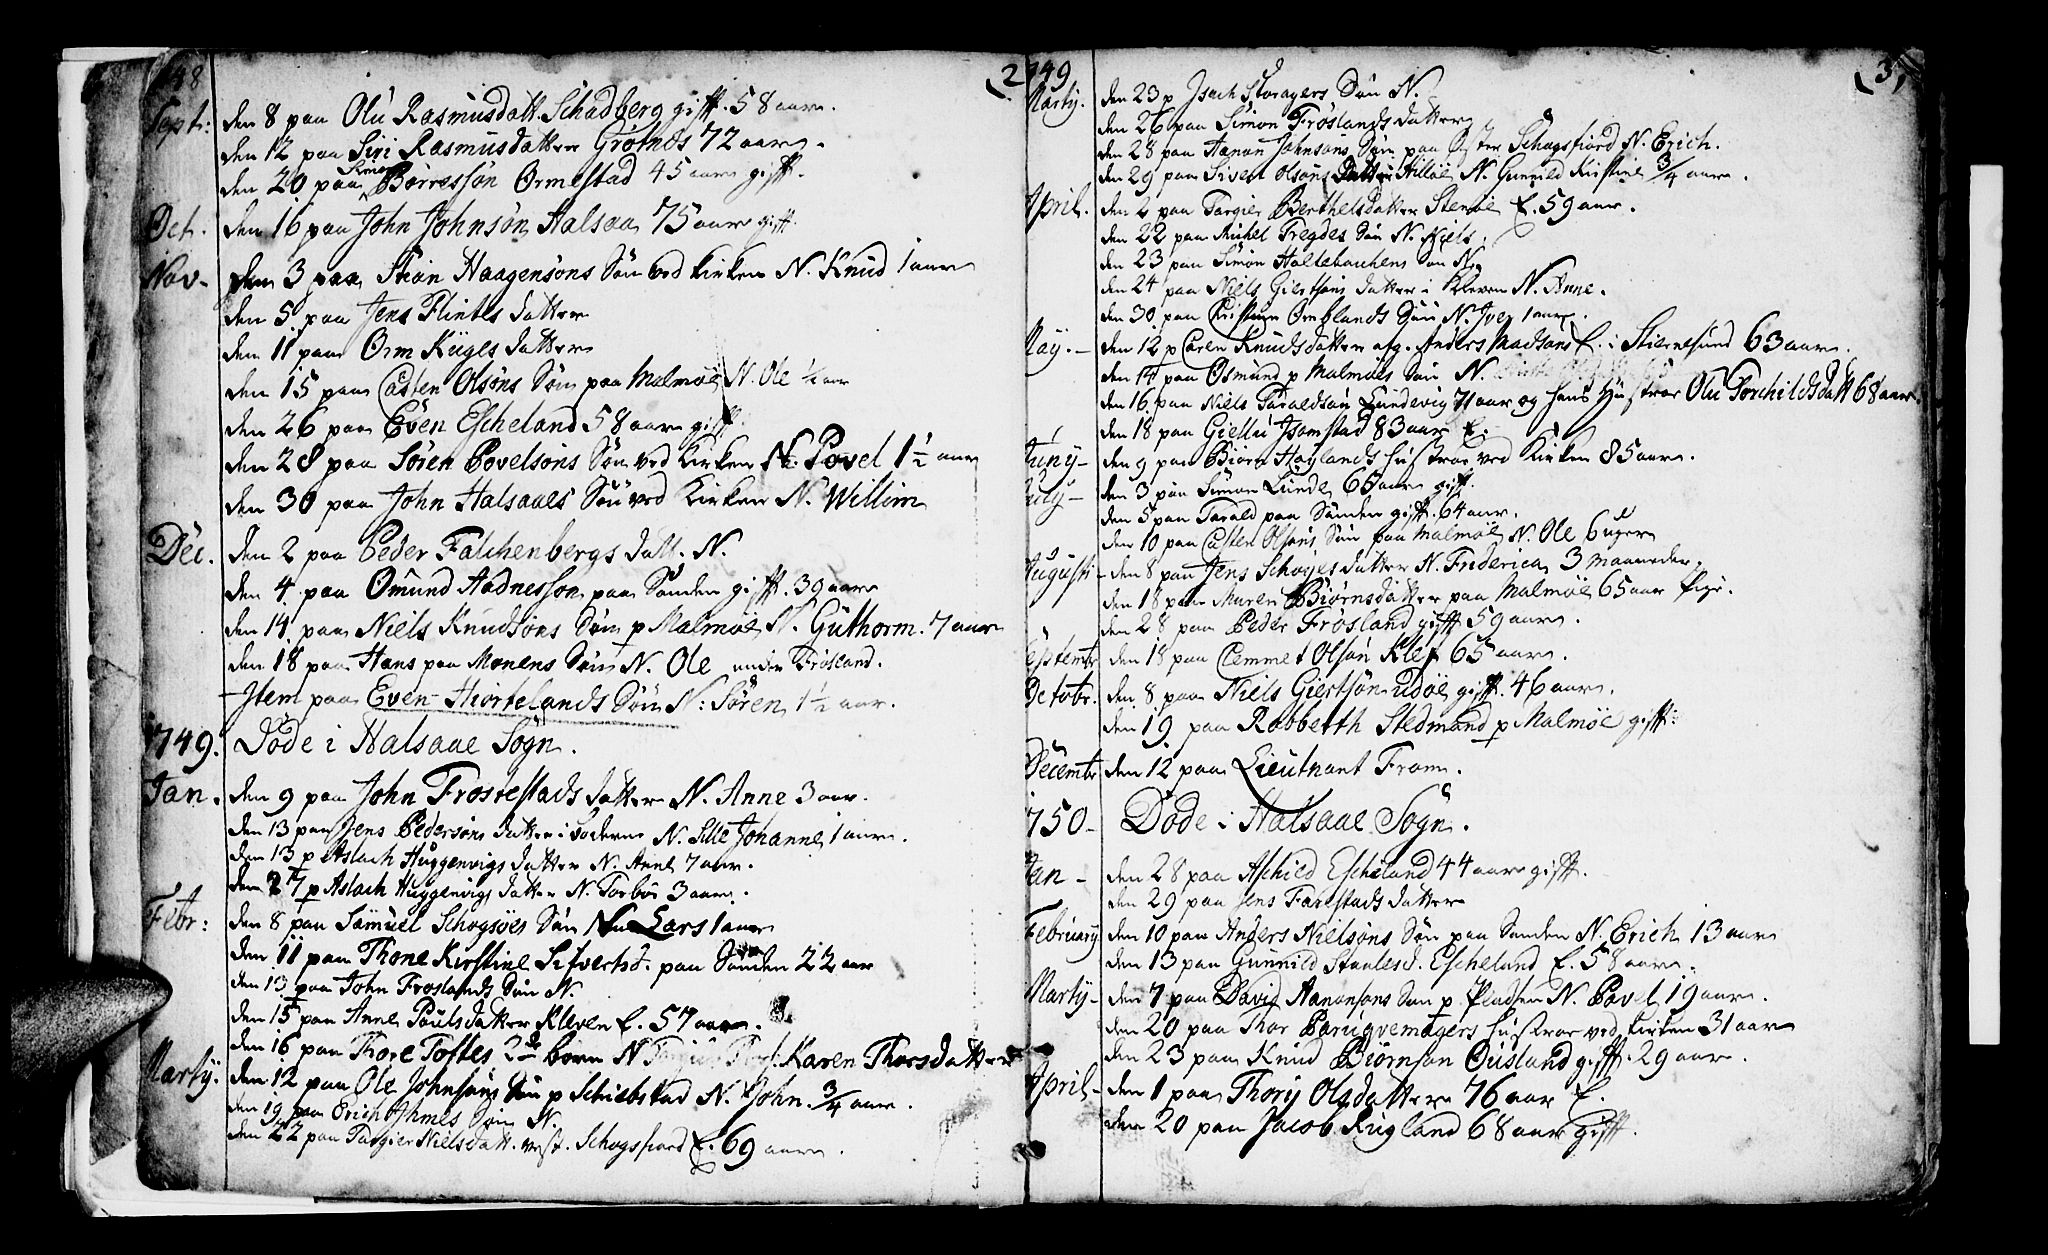 48
2
Sept: den 8 paa Olu Rasmusdatt. Schadberg gifft. 58 aar.
den 12 paa Siri Rasmusdatter Grötnes 72 aar.
den 20 paa Börresön Ormestad 45 aar gifft.
Oct. den 16 paa John Johnsön Halsaa 75 aar gifft.
Nov- den 3 paa Stian Haagensöns Sön ved kirken N. Knud 1 aar
den 5 paa Jens Flintes datter
den 11 paa Orm Küges datter
den 15 paa Casten Olsöns Sön paa Malmöe N. Ole ½ aar
den 26 paa Even Escheland 58 aar gifft.
den 28 paa Sören Povelsöns Sön ved Kirken N. Povel 1½ aar
den 30 paa John Halsaaes Sön ved Kirken N. Willim
Dec. den 2 paa Peder Falchenbergs datt. N.
den 4 paa Omund Aadnessön paa Sanden gifft. 39 aar
den 14 paa Niels Knudsöns Sön p Malmöe N. Guthorm. 7 aar
den 18 paa Hans paa Monens Sön N. Ole under Fröseland.
Item paa Even Hiortelands Sön N: Sören 1½ aar.
1749. Döde i Halsaae Sogn.
Jan. den 9 paa John Frostestads datter N. Anne 3 aar.
den 13 paa Jens Pedersöns datter i N. Sille Johanne 1 aar.
den 13 p Aslach Huggenvigs datter N. Anne 7 aar.
den 27 p Aslach Huggenvigs datter N. Torbör 3 aar.
Febr: den 8 paa Samuel Schogsöes Sön N. Lars 1 aar
den 11 paa Thone Kirstine Sifvertsd. paa Sanden 22 aar
den 13 paa John Froslands Sön N.
den 15 paa Anne Poulsdatter Kleven E. 57 aar.
den 16 paa Thore Toftes 2de börn N Karen Thorsdatter
Martÿ. den 12 paa Ole Johnsöns Sön p Schiebstad N. John. ¾ aar.
den 19 paa Erich Ihmes Sön N.
den 22 paa Targier Nielsdatt. vest. Schogsfiord E. 69 aar.
1749
3
Martÿ. den 23 p Isach Storagers Sön N.
den 26 paa Simon Fröslands datter
den 28 paa Hanon Johnsöns Sön paa Öster Schogsfiord N. Erich.
den 29 paa Sivert Olsöns Datter Hilleöe N. Gunnild Kirstine ¾ aar.
April. den 2 paa Targier Berthelsdatter Stenöe E. 59 aar.
den 22 paa Michel Tregdes Sön N. Niels.
den 23 paa Simon Holtebachens Sön N.
den 24 paa Niels Giertsöns datter i Kleven N. Anne.
den 30 paa Christian Omblands Sön N. Iver 1 aar.
Maÿ. den 12 p Caren Knudsdatter afg. Anders Madsöns E. i Stiernesund 63 aar.
den 14 paa Osmund p Malmöes Sön N.
den 16 paa Niels Taraldsön Lundevig 71 aar og hans hustrue Olu Torchildsdatt 68 aar.
den 18 paa Giellu Isomstad 83 aar E.
Junÿ- den 9 paa Biörn Höylands hustrue ved Kirken 85 aar.
Julÿ- den 3 paa Simon Lunde 65 aar gift.
den 5 paa Tarald paa Sanden gifft. 64 aar.
den 10 paa Casten Olsöns Sön paa Malmöe N. Ole 6 uger
Augusti- den 8 paa Jens Schoÿes datter N. Friderica 3 maaneder.
den 18 paa Maren Biörnsdatter paa Malmöe 65 aar
den 28 paa Peder Frösland gifft 59 aar.
Septembr den 18 paa Clemmet Olsön Klef 65 aar.
Octobr. den 8 paa Niels Giertsön Udöe gifft. 46 aar.
den 19 paa Robberth Stedmand p Malmöe gifft:
Decembr den 12 paa Lieutnant From.
1750- Döde i Halsaae Sogn.
Jan- den 28 paa Aschild Escheland 44 aar gifft.
den 29 paa Jens Farestads datter
Februarÿ den 10 paa Anders Nielsöns Sön paa Sanden N. Erich 13 aar
den 13 paa Gunnild Staalesd. Escheland E. 58 aar.
Martÿ- den 7 paa David Hanonsöns Sön p Pladsen N. Povel 19 aar.
den 20 paa Thor Paruqvemagers hustrue ved kirken 31 aar
den 23 paa Knud Biörnsön Ousland gifft. 29 aar.
April- den 1 paa Thorÿ Olsdatter 76 aar E.
den 20 paa Jacob Rugland 68 aar gifft.